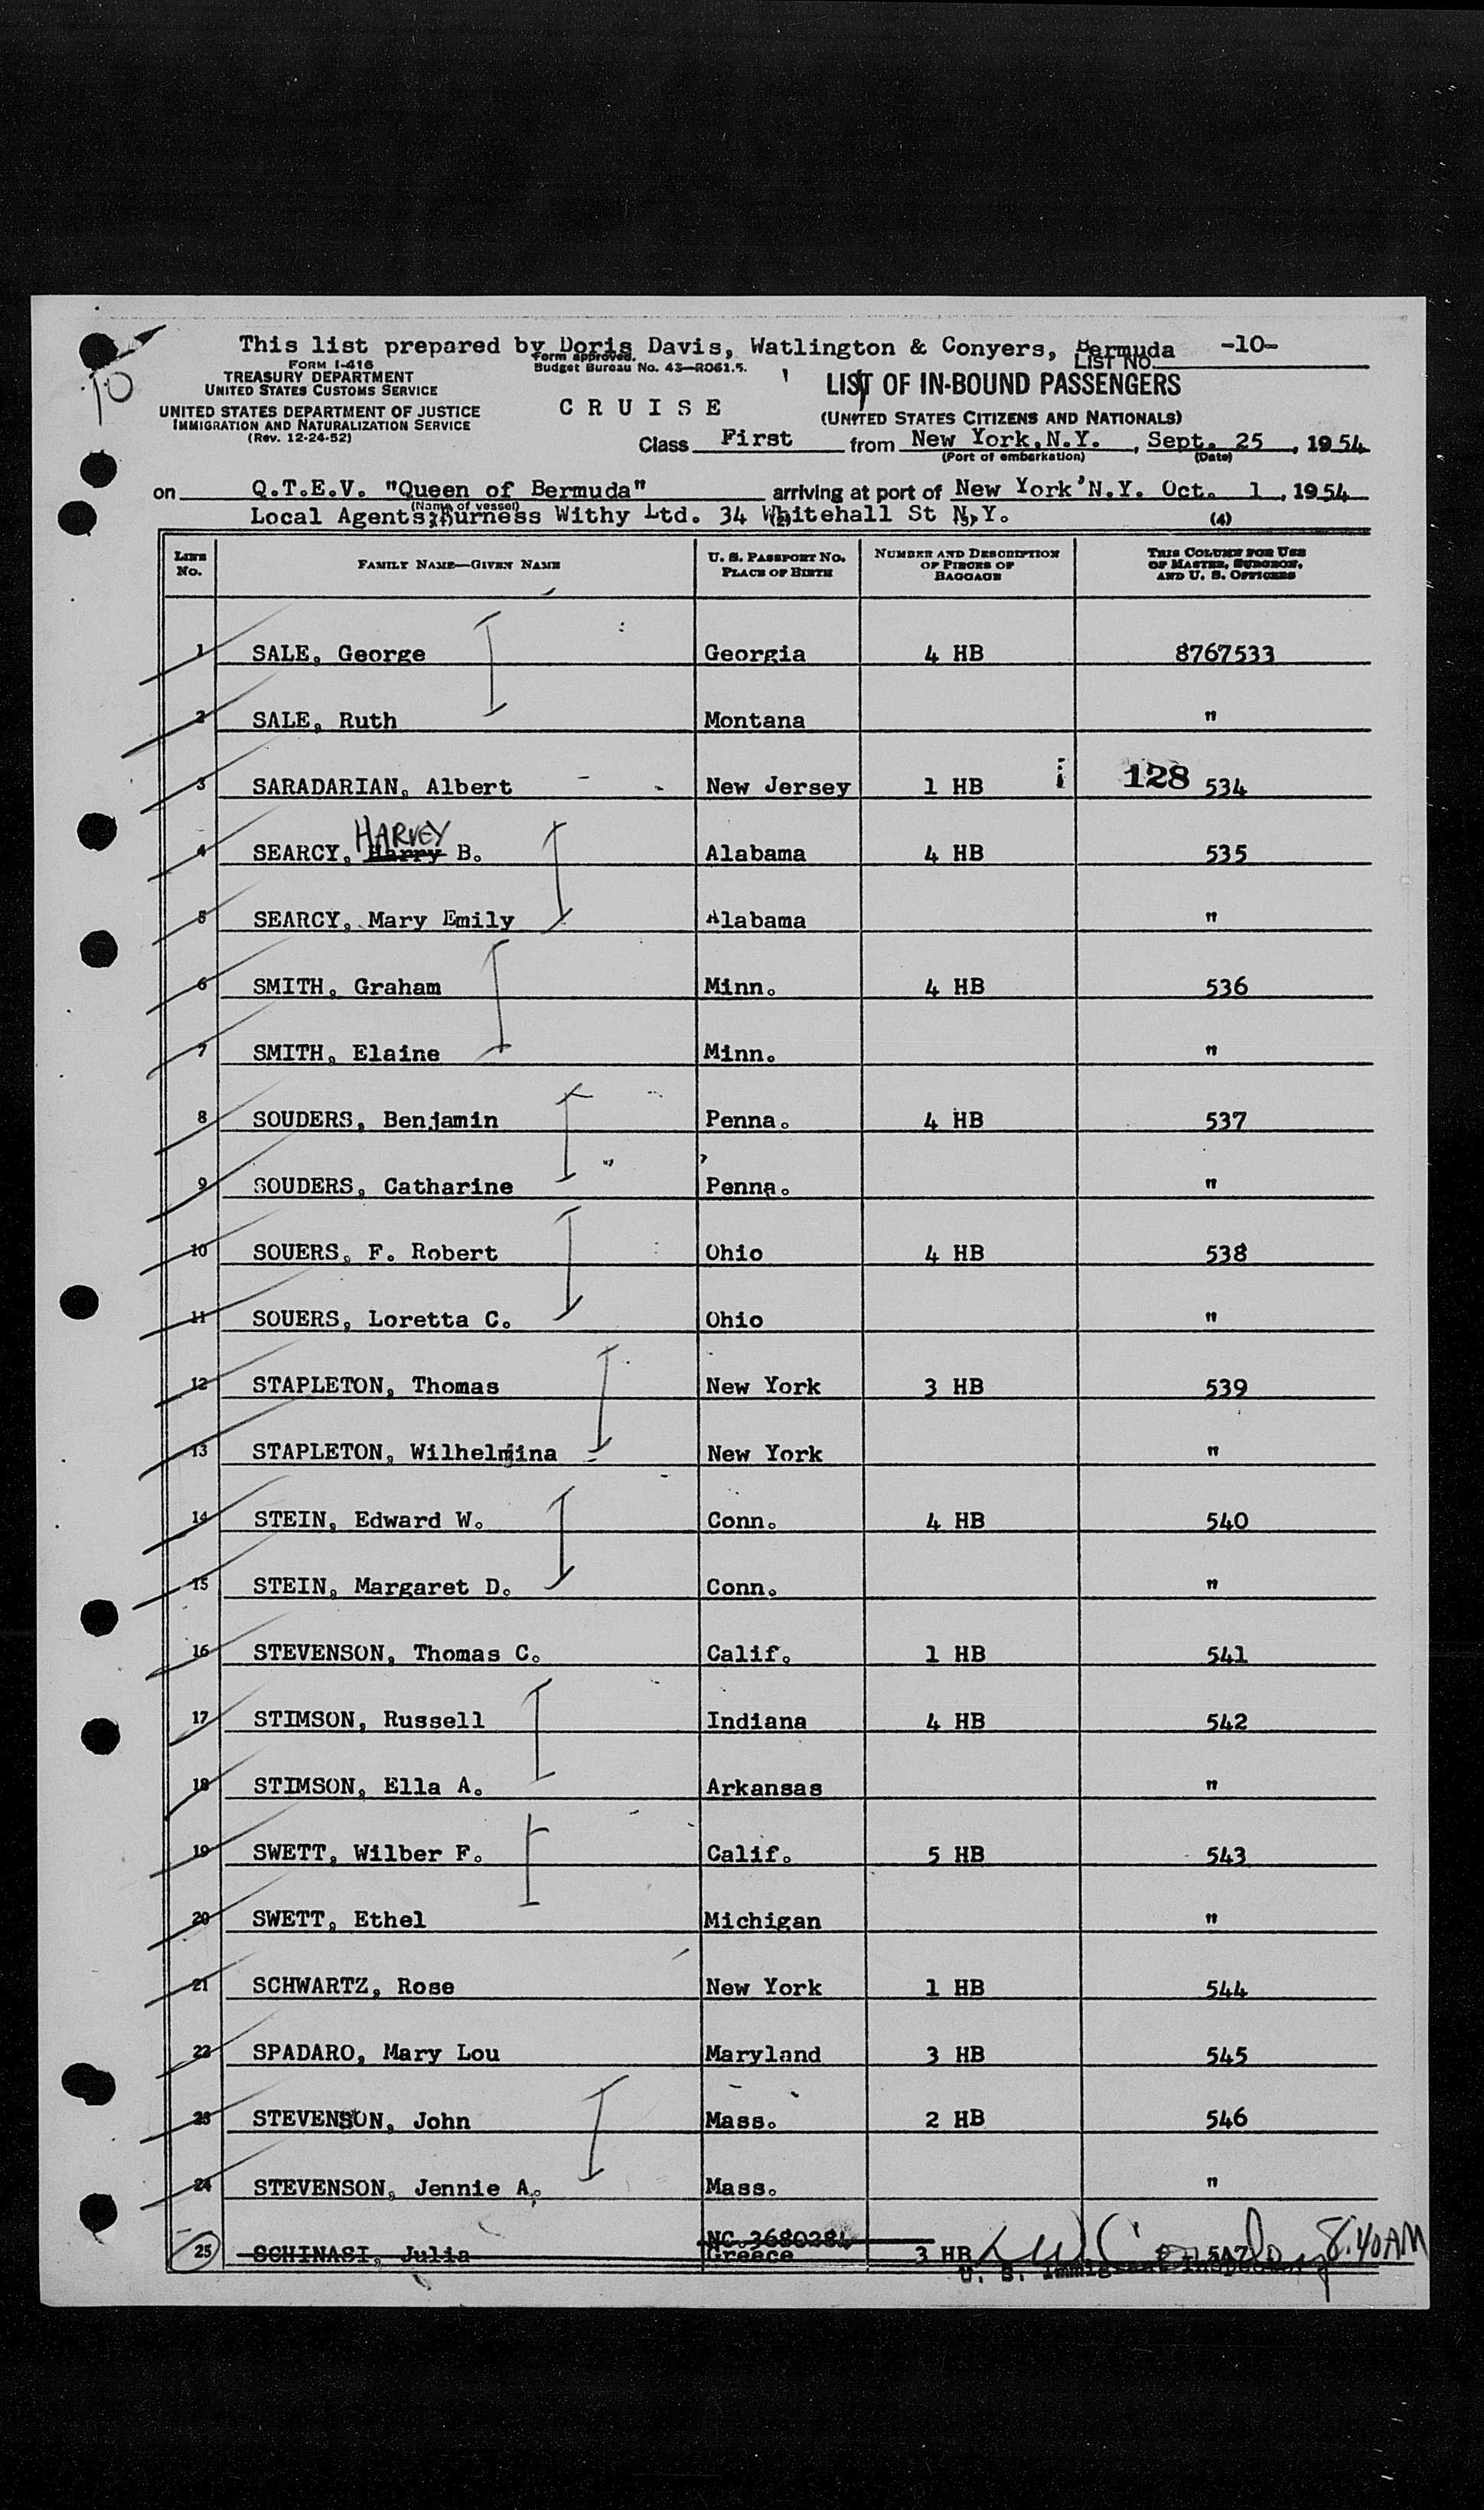 This list prepared by Doris Davis, Watlington & Conyers, Bermuda -10-
LIST NO.
FORM I-416
TREASURY DEPARTMENT
UNITED STATES CUSTOMS SERVICE
UNITED STATES DEPARTMENT OF JUSTICE
IMMIGRATION AND NATURALIZATION SERVICE
(Rev. 12-24-52)
10
Form approved.
Budget Bureau No. 43—R061.5.
CRUISE
LIST OF IN-BOUND PASSENGERS
(UNITED STATES CITIZENS AND NATIONALS)
Class First from New York, N.Y., Sept. 25, 1954
(Port of embarkation) (Date)
on Q.T.E.V. "Queen of Bermuda" arriving at port of New York N.Y. Oct. 1, 1954
(Name of vessel)
Local Agents: Furness Withy Ltd. 34 Whitehall St N.Y.
(2) (3) (4)
LINE No. FAMILY NAME—GIVEN NAME U. S. PASSPORT NO. PLACE OF BIRTH NUMBER AND DESCRIPTION OF PIECES OF BAGGAGE THIS COLUMN FOR USE OF MASTER, SURGEON, AND U. S. OFFICERS
1 SALE, George Georgia 4 HB 8767533
2 SALE, Ruth Montana "
3 SARADARIAN, Albert New Jersey 1 HB 128 534
4 SEARCY, Harry HARVEY B. Alabama 4 HB 535
5 SEARCY, Mary Emily Alabama "
6 SMITH, Graham Minn. 4 HB 536
7 SMITH, Elaine Minn. "
8 SOUDERS, Benjamin Penna. 4 HB 537
9 SOUDERS, Catharine Penna. "
10 SOUERS, F. Robert Ohio 4 HB 538
11 SOUERS, Loretta C. Ohio "
12 STAPLETON, Thomas New York 3 HB 539
13 STAPLETON, Wilhelmina New York "
14 STEIN, Edward W. Conn. 4 HB 540
15 STEIN, Margaret D. Conn. "
16 STEVENSON, Thomas C. Calif. 1 HB 541
17 STIMSON, Russell Indiana 4 HB 542
18 STIMSON, Ella A. Arkansas "
19 SWETT, Wilber F. Calif. 5 HB 543
20 SWETT, Ethel Michigan "
21 SCHWARTZ, Rose New York 1 HB 544
22 SPADARO, Mary Lou Maryland 3 HB 545
23 STEVENSON, John Mass. 2 HB 546
24 STEVENSON, Jennie A. Mass. "
NC.3680284
25 SCHINASI, Julia Greece 3 HB 547 8:40AM
U. S. Immigrant Inspector